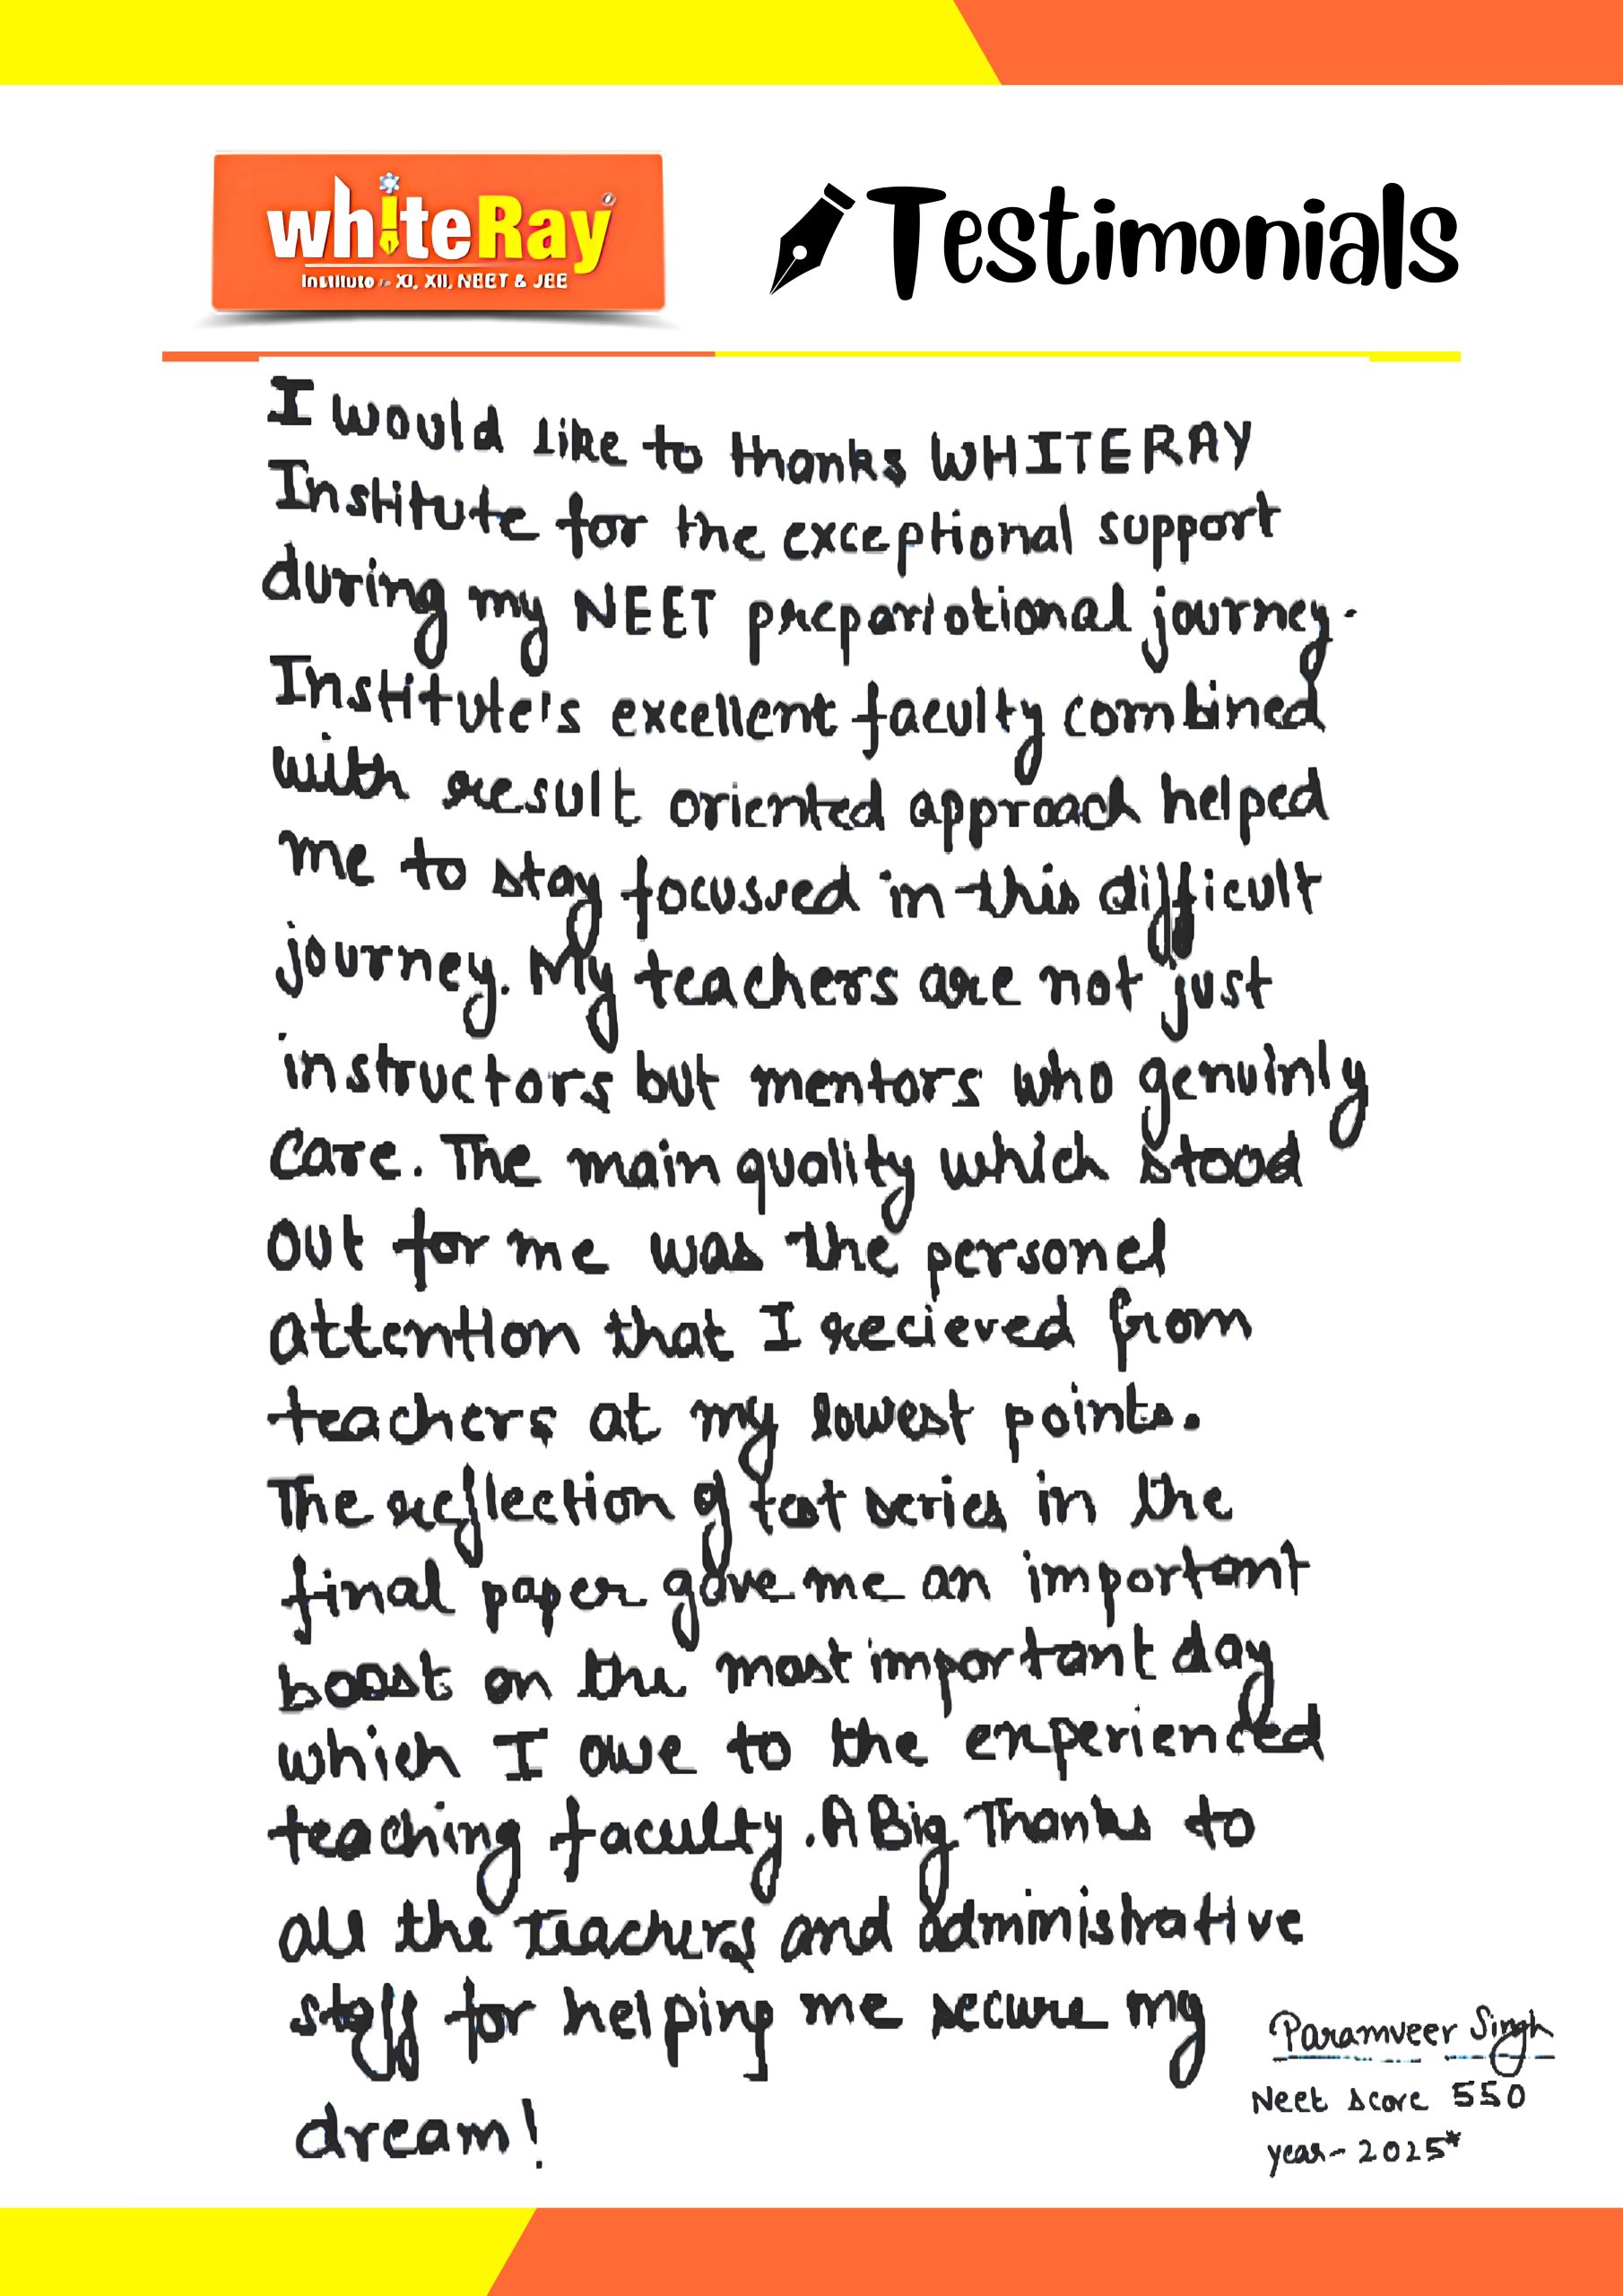 whiteRay
Institute - XI, XII, NEET & JEE
Testimonials
I would like to thanks WHITERAY
Institute for the exceptional support
during my NEET prepariotional journey.
Institute's excellent faculty combined
with result oriented approach helped
me to stay focussed in this difficult
journey. My teachers are not just
instructors but mentors who genuinly
care. The main quality which stood
out for me was the personel
attention that I recieved from
teachers at my lowest points.
The reflection of test series in the
final paper gave me an important
boost on the most important day
which I owe to the experienced
teaching faculty. A Big Thanks to
all the teachers and administrative
staff for helping me secure my
dream!
Paramveer Singh
Neet score 550
year - 2025*